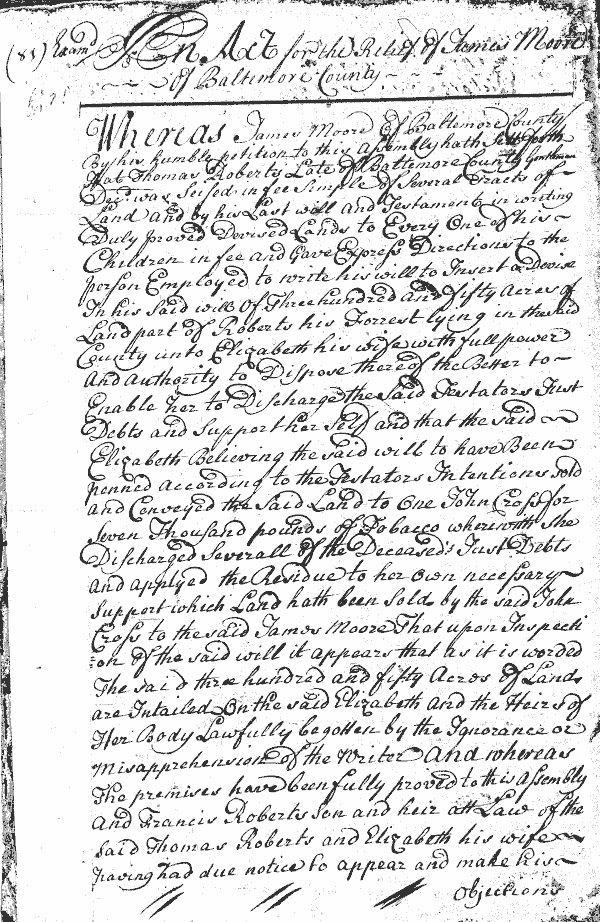 (81) Exam.d An Act for the Relief of James Moore
of Baltimore County
Whereas James Moore of Baltemore County
by his humble petition to this Assembly hath Sett forth
that Thomas Roberts Late of Baltemore County Gentleman
Dec.d was Seised in fee Simple of Several Tracts of
Land and by his Last will and Testament in writing
Duly proved Devised Lands to Every One of his
Children in fee and Gave Express Directions to the
person Employed to write his will to Insert a Devise
In his Said will Of Three hundred and fifty Acres of
Land part of Roberts his Forrest lying in the said
County unto Elizabeth his wife with full power
and authority to Dispose thereof the Better to
Enable her to Discharge the said Testators Just
Debts and Support her Self and that the said
Elizabeth Believing the said will to have Been
penned according to the Testators Intentions sold
and Conveyed the Said Land to One John Cross for
Seven Thousand pounds of Tobacco wherewith She
Discharged Severall of the Deceased's Just Debts
and applyed the Residue to her own necessary
Support which Land hath been Sold by the said John
Cross to the said James Moore That upon Inspecti
=on of the said will it appears that as it is worded
The said three hundred and fifty Acres of Land
are Intailed On the said Elizabeth and the Heirs of
Her Body Lawfully begotten by the Ignorance or
Misapprehension of the Writer And whereas
The premises have been fully proved to this Assembly
And Francis Roberts Son and heir att Law of the
Said Thomas Roberts and Elizabeth his wife
having had due notice to appear and make his
Objections